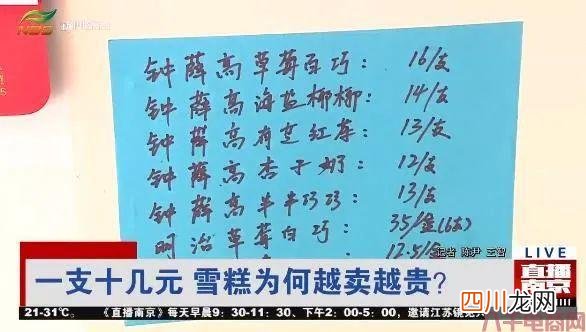 NBS
钟薛高草莓白巧: 16/支
钟薛高海盐椰椰: 14/支
钟薛高有芝红莓: 13/支
钟薛高杏子奶: 12/支
钟薛高半半巧巧: 13/支
明治草莓白巧: 35/盒(6支)
12.5/
记者 陈尹 王智
LIVE
直播南京
一支十几元 雪糕为何越卖越贵?
21-31℃。 《直播南京》每天早晨9:30-11:30、下午2:00-5:00,邀请江苏镇
四川龙网
电商网